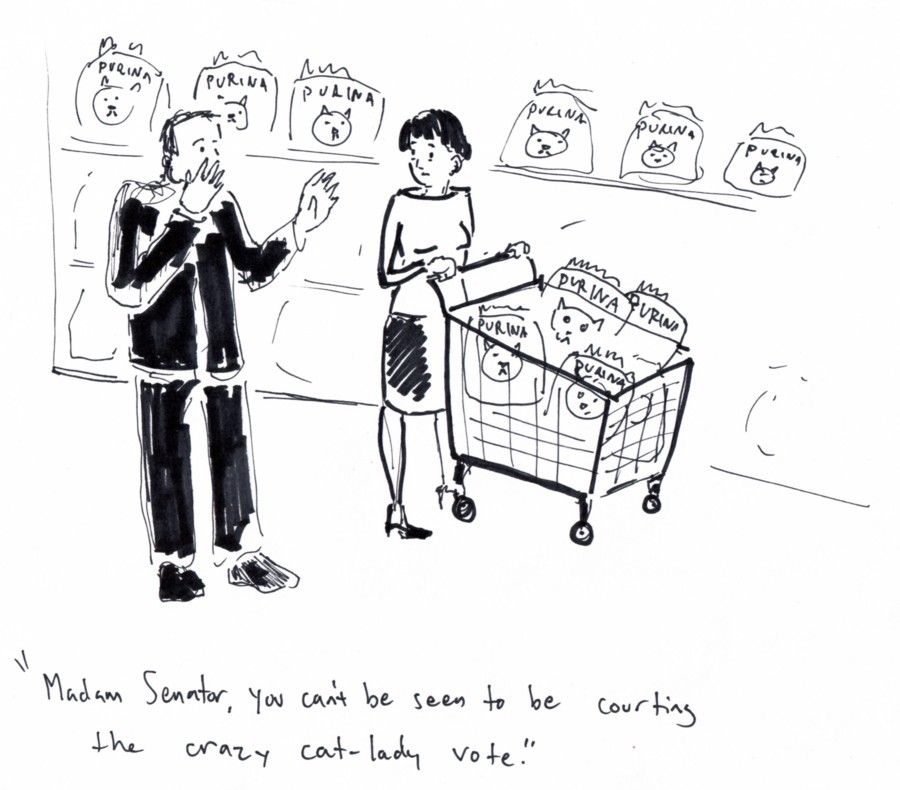 PURINA
PURINA
PURINA
PURINA
PURINA
PURINA
PURINA
PURINA
PURINA
PURINA
"Madam Senator, you can't be seen to be courting
the crazy cat-lady vote."